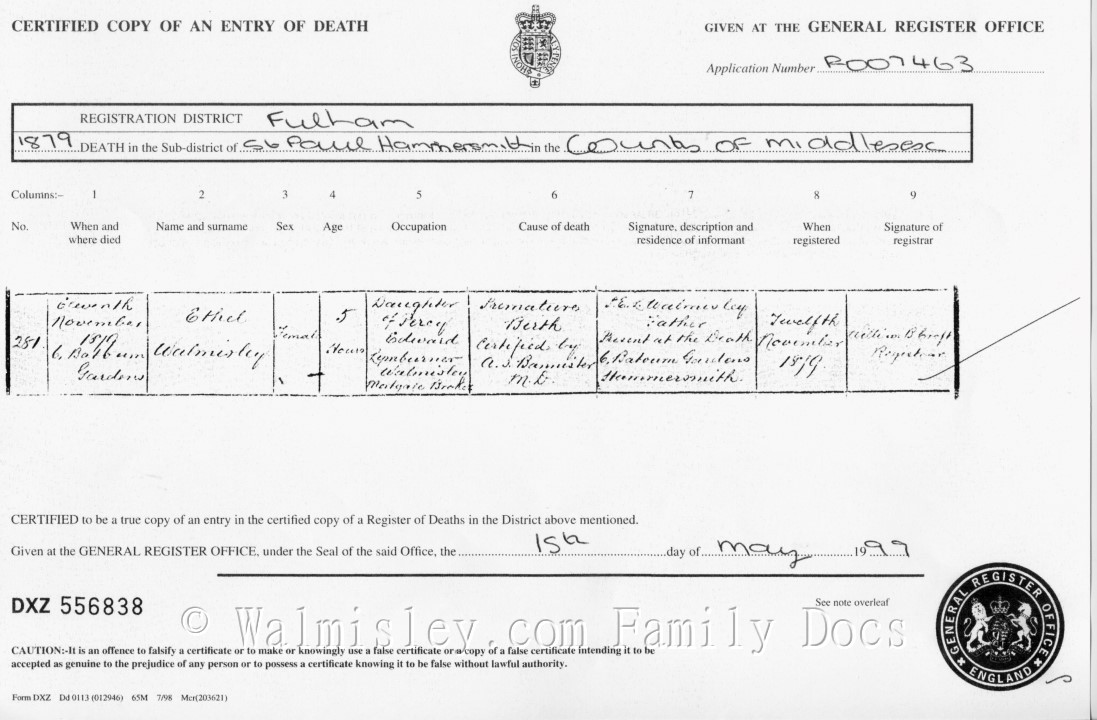 CERTIFIED COPY OF AN ENTRY OF DEATH
GIVEN AT THE GENERAL REGISTER OFFICE
Application Number R007463
REGISTRATION DISTRICT Fulham
1879 DEATH in the Sub-district of St Paul Hammersmith in the County of Middlesex
Columns:- 1 2 3 4 5 6 7 8 9
No. When and where died Name and surname Sex Age Occupation Cause of death Signature, description and residence of informant When registered Signature of registrar
281
Eleventh
November
1879
6, Batoum
Gardens
Ethel
Walmisley
Female
5
Hours
Daughter
of Percy
Edward
Lymburner
Walmisley
Mortgage Broker
Premature
Birth
Certified by
A. S. Bannister
M.D.
P. E. L. Walmisley
Father
Present at the Death
6, Batoum Gardens
Hammersmith.
Twelfth
November
1879.
William B
Registrar
CERTIFIED to be a true copy of an entry in the certified copy of a Register of Deaths in the District above mentioned.
Given at the GENERAL REGISTER OFFICE, under the Seal of the said Office, the day of May 1999
DXZ 556838
See note overleaf
© Walmisley.com Family Docs
CAUTION:-It is an offence to falsify a certificate or to make or knowingly use a false certificate or a copy of a false certificate intending it to be
accepted as genuine to the prejudice of any person or to possess a certificate knowing it to be false without lawful authority.
Form DXZ Dd 0113 (012946) 65M 7/98 Mcr(203621)
GENERAL REGISTER OFFICE
ENGLAND